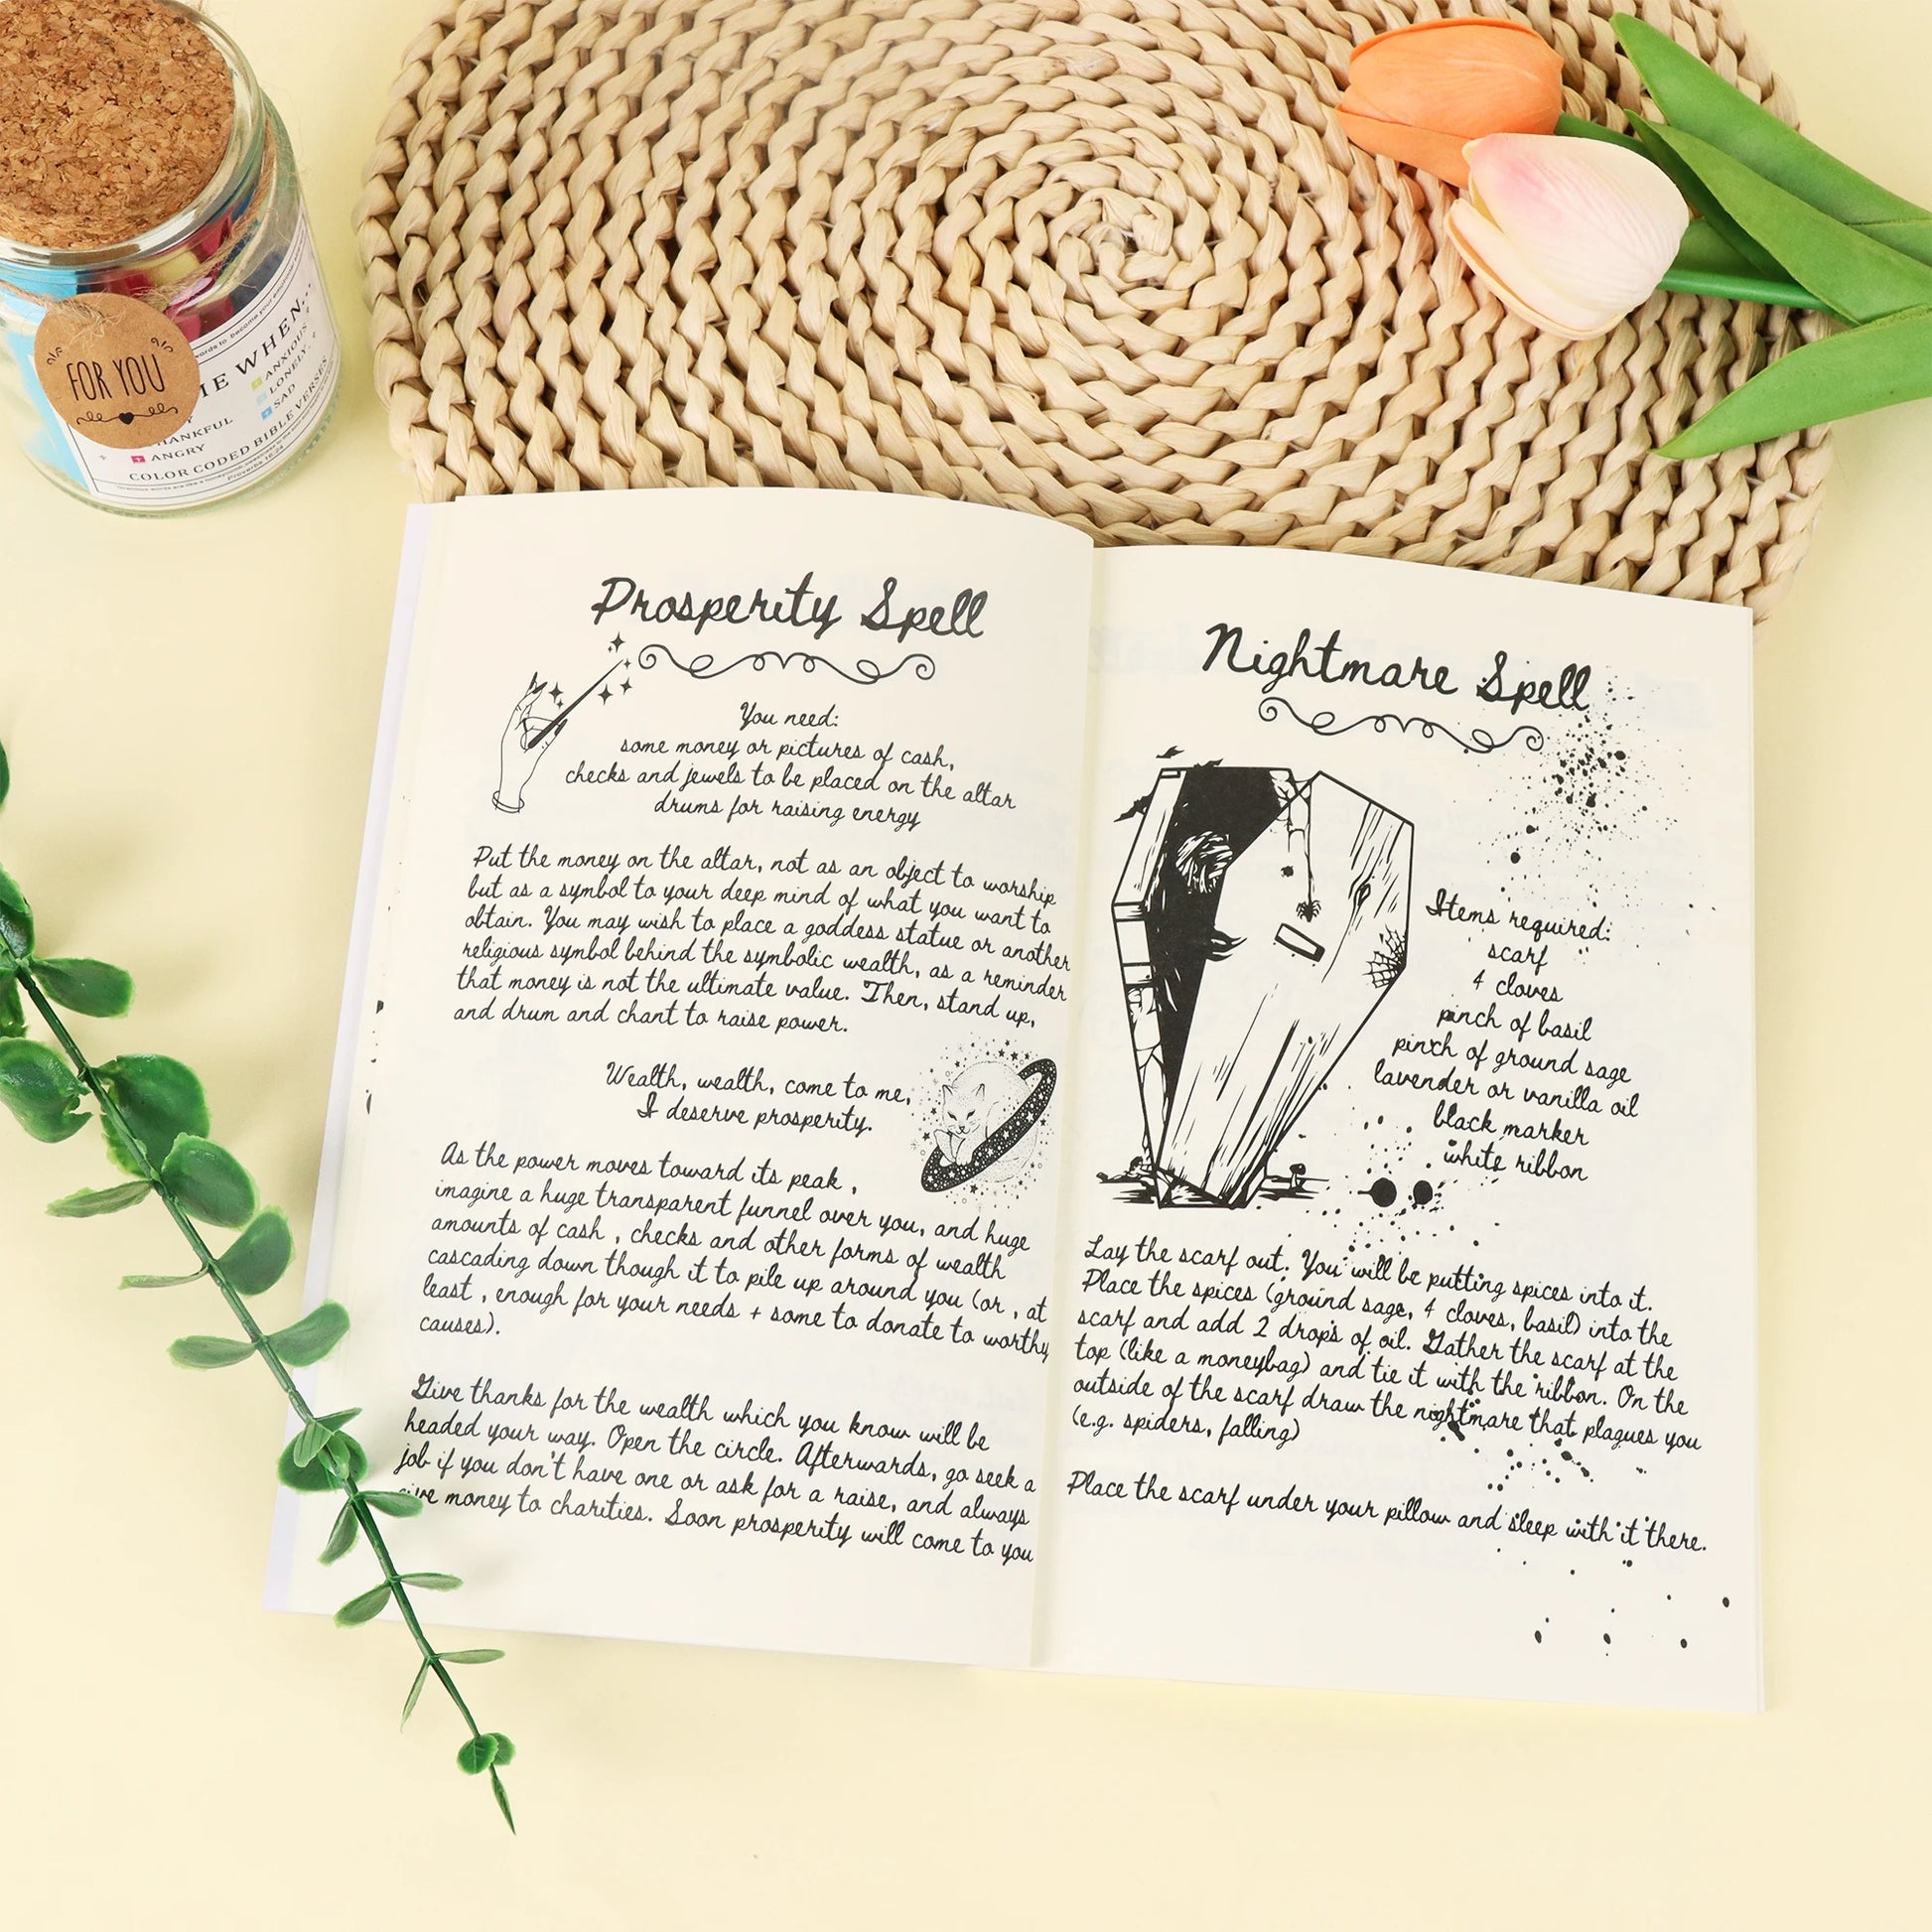 FOR YOU
IE WHEN...
ANXIOUS
LONELY
SAD
HANKFUL
ANGRY
COLOR CODED BIBLE VERSES
Proverbs 16:24
Prosperity Spell
You need:
some money or pictures of cash,
checks and jewels to be placed on the altar
drums for raising energy
Put the money on the altar, not as an object to worship
but as a symbol to your deep mind of what you want to
obtain. You may wish to place a goddess statue or another
religious symbol behind the symbolic wealth, as a reminder
that money is not the ultimate value. Then, stand up,
and drum and chant to raise power.
Wealth, wealth, come to me,
I deserve prosperity.
As the power moves toward its peak ,
imagine a huge transparent funnel over you, and huge
amounts of cash , checks and other forms of wealth
cascading down though it to pile up around you (or , at
least , enough for your needs + some to donate to worthy
causes).
Give thanks for the wealth which you know will be
headed your way. Open the circle. Afterwards, go seek a
job if you don't have one or ask for a raise, and always
give money to charities. Soon prosperity will come to you
Nightmare Spell
Items required:
scarf
4 cloves
pinch of basil
pinch of ground sage
lavender or vanilla oil
black marker
white ribbon
Lay the scarf out. You will be putting spices into it.
Place the spices (ground sage, 4 cloves, basil) into the
scarf and add 2 drops of oil. Gather the scarf at the
top (like a moneybag) and tie it with the ribbon. On the
outside of the scarf draw the nightmare that plagues you
(e.g. spiders, falling)
Place the scarf under your pillow and sleep with it there.